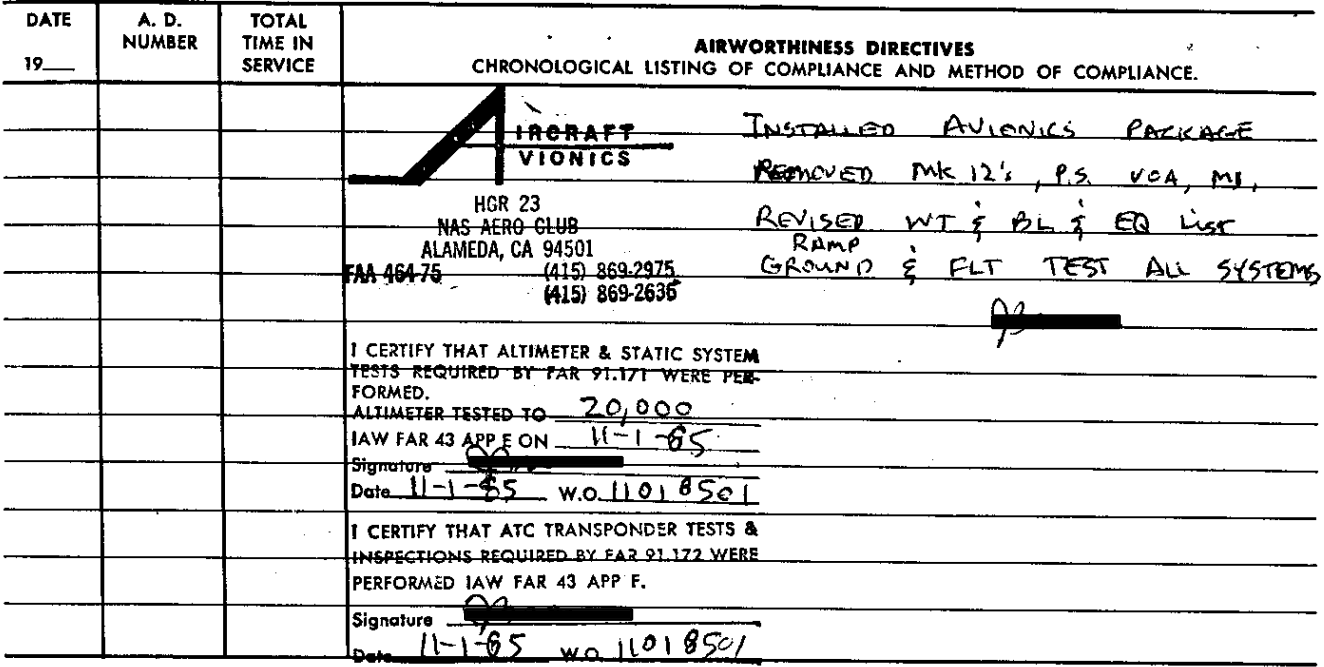 DATE
19
A. D.
NUMBER
TOTAL
TIME IN
SERVICE
AIRWORTHINESS DIRECTIVES
CHRONOLOGICAL LISTING OF COMPLIANCE AND METHOD OF COMPLIANCE.
AIRCRAFT
AVIONICS
HGR 23
NAS AERO CLUB
ALAMEDA, CA 94501
FAA 464-75 (415) 869-2975
(415) 869-2636
INSTALLED AVIONICS PACKAGE
REMOVED MK 12's, P.S. VOA, MB,
REVISED WT & BL & EQ LIST
RAMP
GROUND & FLT TEST ALL SYSTEMS
I CERTIFY THAT ALTIMETER & STATIC SYSTEM
TESTS REQUIRED BY FAR 91.171 WERE PER-
FORMED.
ALTIMETER TESTED TO 20,000
IAW FAR 43 APP E ON 11-1-85
Signature
Date 11-1-85 W.O. 11018501
I CERTIFY THAT ATC TRANSPONDER TESTS &
INSPECTIONS REQUIRED BY FAR 91.172 WERE
PERFORMED IAW FAR 43 APP F.
Signature
Date 11-1-85 W.O. 11018501